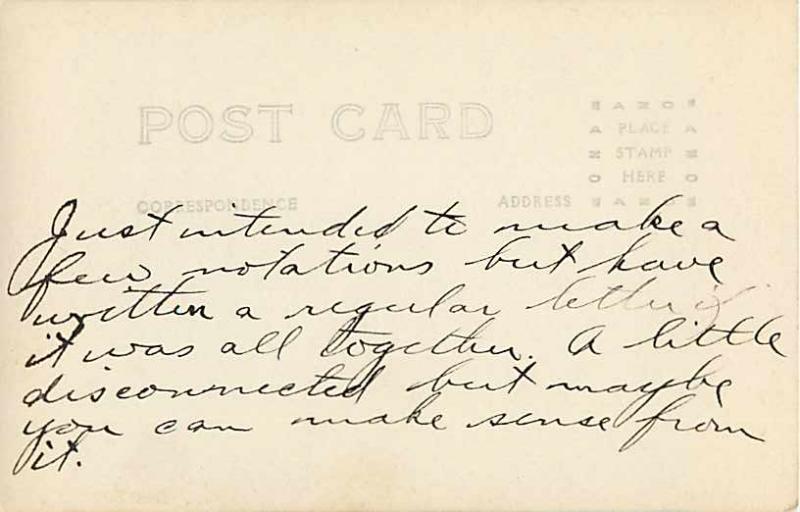 POST CARD
AZO
PLACE
STAMP
HERE
CORRESPONDENCE
ADDRESS
Just intended to make a
few notations but have
written a regular letter if
it was all together. A little
disconnected but maybe
you can make sense from
it.